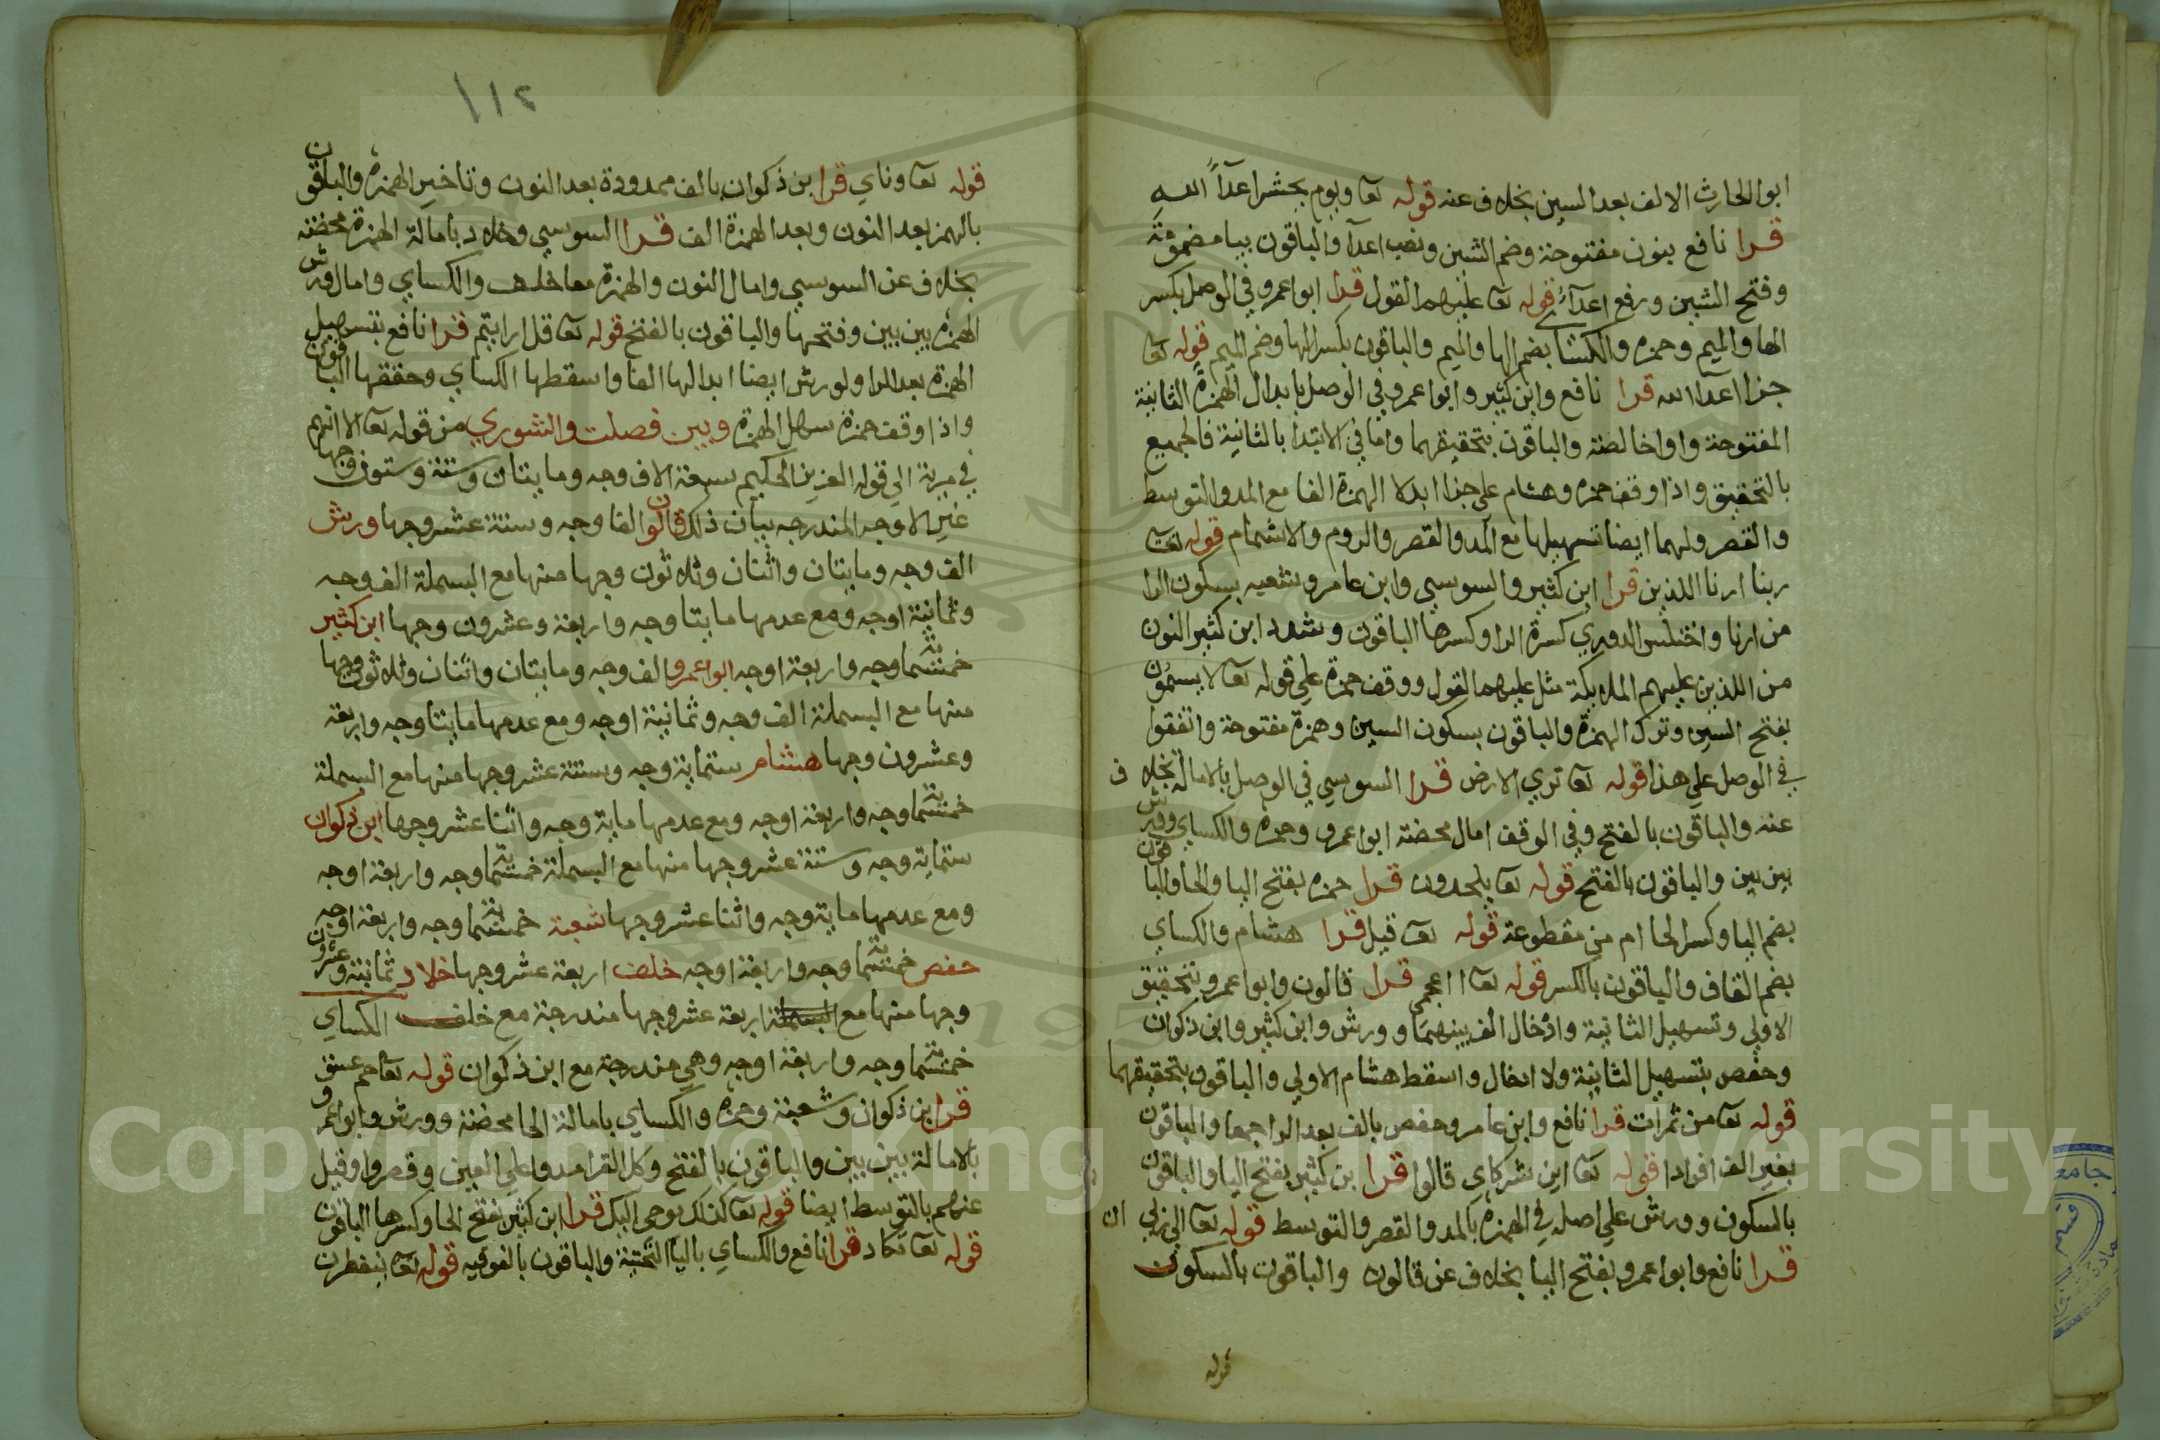 ابوا الحارث الالف بعد السين بخلاف عنه قوله تعا ويوم يحشر اعدآءُ الله
قرا نافع بنون مفتوحة وضم الشين ونصب اعدآ والباقون بيا مضمومة
وفتح الشين ورفع اعدآءُ قوله تعا عليهم القول قرا ابوا عمرو في الوصل بكسر
الها والميم وحمزه والكساي بضم الها والميم والباقون بكسر الها وضم الميم قوله تعا
جزا اعدآ الله قرا نافع وابن كثير وابوا عمرو في الوصل بابدال الهمزة الثانية
المفتوحة واوا خالصة والباقون بتحقيقهما واما في الابتدا بالثانية فالجميع
بالتحقيق واذا وقف حمزه وهشام على جزا ابدلا الهمزة الفا مع المد والتوسط
والقصر ولهما ايضا تسهيلها مع المد والقصر والروم والاشمام قوله تعا
ربنا ارنا اللذين قرا ابن كثير والسوسي وابن عامر وشعبه بسكون الرا
من ارنا واختلس الدوري كسرة الرا وكسرها الباقون وشدد ابن كثير النون
من اللذين عليهم الملايكة مثل عليهم القول ووقف حمزة على قوله تعا لا يسمون
بفتح السين وترك الهمزة والباقون بسكون السين وهمزة مفتوحة واتفقوا
في الوصل على هذا قوله تعا تري الارض قرا السوسي في الوصل بالامالة بخلاف
عنه والباقون بالفتح وفي الوقف امال محضة ابوا عمرو وحمزه والكساي وورش
بين بين والباقون بالفتح قوله تعا يلحدون قرا حمزه بفتح اليا والحا والباقون
بضم اليا وكسر الحا ام من مقطوعة قوله تعا قيل قرا هشام والكساي
بضم القاف والباقون بالكسر قوله تعا ااعجمي قرا قالون وابوا عمرو بتحقيق
الاولي وتسهيل الثانية وادخال الف بينهما وورش وابن كثير وابن ذكوان
وحفص بتسهيل الثانية ولا ادخال واسقط هشام الاولي والباقون بتحقيقهما
قوله تعا من ثمرات قرا نافع وابن عامر وحفص بالف بعد الرا جمعا والباقون
بغير الف افرادا قوله تعا اين شركاي قالوا قرا بن كثير بفتح اليا والباقون
بالسكون وورش علي اصله في الهمزه بالمد والقصر والتوسط قوله تعا الي ربي ان
قرا نافع وابوا عمرو بفتح اليا بخلاف عن قالون والباقون بالسكون
قوله
١١٢
قوله تعا وناي قرا بن ذكوان بالف ممدودة بعد النون وتاخير الهمزة والباقون
بالهمز بعد النون وبعد الهمزة الف قرا السوسي وخلاد بامالة الهمزة محضة
بخلاف عن السوسي وامال النون والهمزة معا خلف والكساي وامال ورش
الهمزه بين بين وفتحها والباقون بالفتح قوله تعا قل ارايتم قرا نافع بتسهيل
الهمزة بعد الرا ولورش ايضا ابدالها الفا واسقطها الكساي وحققها الباقون
واذا وقف حمزة سهل الهمزه وبين فصلت والشوري من قوله تعا الا انهم
في مرية الي قوله العزيز الحكيم سبعة الاف وجه ومايتان وستة وستون وجها
غير الاوجه المندرجه بيان ذلك قالون الفا وجه وستة عشر وجها ورش
الف وجه ومايتان واثنان وثلاثون وجها منها مع البسملة الف وجه
وثمانية اوجه ومع عدمها مايتا وجه واربعة وعشرون وجها ابن كثير
خمسمائة وجه واربعة اوجه ابوا عمرو الف وجه ومايتان واثنان وثلاثون وجها
منها مع البسملة الف وجه وثمانية اوجه ومع عدمها مايتا وجه واربعة
وعشرون وجها هشام ستماية وجه وستة عشر وجها منها مع البسملة
خمسمائة وجه واربعة اوجه ومع عدمها ماية وجه واثنا عشر وجها ابن ذكوان
ستماية وجه وستة عشر وجها منها مع البسملة خمسمائة وجه واربعة اوجه
ومع عدمها ماية وجه واثنا عشر وجها شعبة خمسمائة وجه واربعة اوجه
حفص خمسمائة وجه واربعة اوجه خلف اربعة عشر وجها خلاد ثمانية وعشرون
وجها منها مع البسملة اربعة عشر وجها مندرجة مع خلف الكساي
خمسمائة وجه واربعة اوجه وهي مندرجة مع ابن ذكوان قوله تعا حم عسق
قرا بن ذكوان وشعبة وحمزه والكساي بامالة الحا محضة وورش وابوا عمرو
بالامالة بين بين والباقون بالفتح وكل القرا مدوا علي العين وقصروا وقيل
عنهم بالتوسط ايضا قوله تعا كذلك يوحي اليك قرا ابن كثير بفتح الحا وكسرها الباقون
قوله تعا تكاد قرا نافع والكساي باليا التحتية والباقون بالفوقيه قوله تعا ينفطرن
Copyright © King Saud University
1957